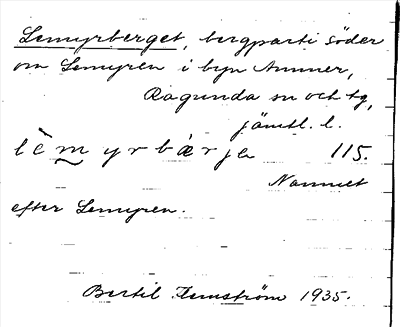 Lemyrberget, bergparti söder
om Lemyren i byn Ammer,
Ragunda sn och tg,
jämtl. l.
lèmyrbærje 115.
Namnet
efter Lemyren.
Bertil Flemström 1935.